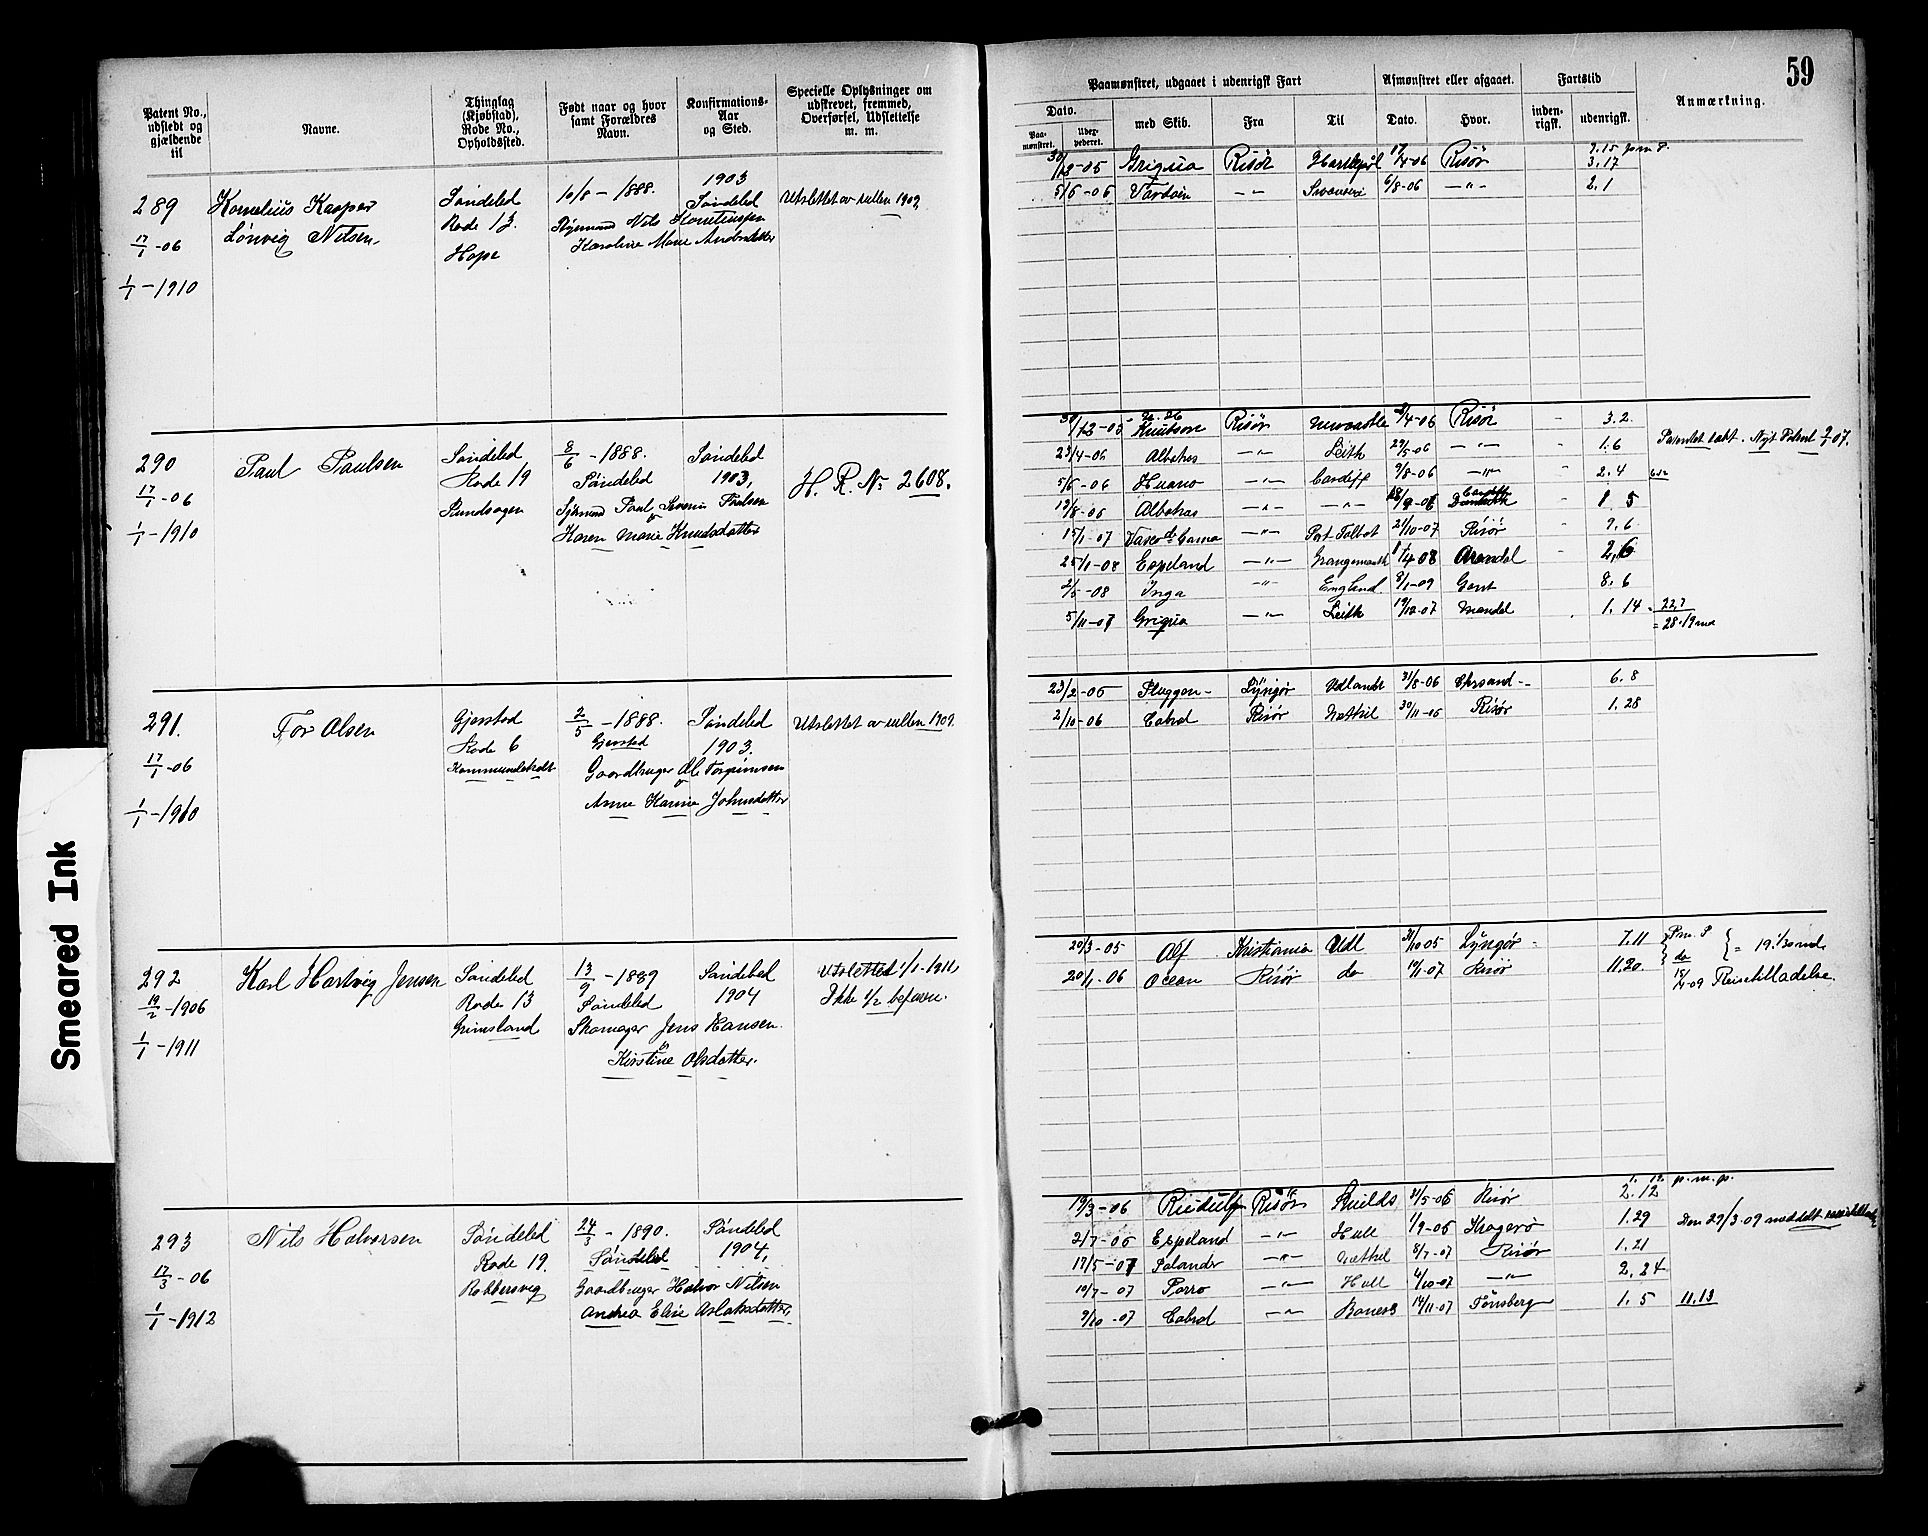 59
Patent No., udstedt og gjældende til
Navne.
Thinglag (Kjøbstad), Rode No., Opholdssted.
Født naar og hvor samt Forældres Navn.
Konfirmations-Aar og Sted.
Specielle Oplysninger om udskrevet, fremmed, Overførsel, Udslettelse m. m.
Paamønstret, udgaaet i udenrigsk Fart
Dato.
Paa-mønstret.
med Skib.
Fra
Til
Afmønstret eller afgaaet.
Dato.
Hvor.
Fartstid
inden-rigsk.
udenrigsk.
Anmærkning.
289
17/1-06
1/1-1910
Kornelius Kasper
Lønvig Nilsen.
Søndeled
Rode 13.
Hope
10/8-1888.
1903
Søndeled
Nils
Karoline Marie
Utslettet av rullen 1909.
30/12-05 Griqua Risör 17/4-06 Risör 3.17
5/6-06 -"- 6/8-06 -"- 2.1
290
17/1-06
1/1-1910
Paul Paulsen
Søndeled
Rode 19
8/6-1888.
Søndeled
Paul Severin Paulsen
Karen Marie Knudsdatter
Søndeled
1903,
H. R. No 2608.
30/12-05 Knutson Risör 4-06 Risör 3.2.
23/4-06 Albatros -"- Leith 29/5-06 -"- 1.6
5/6-06 Huano -"- Cardiff 9/8-06 -"- 2.4
Albatros -"- -"- 1 5
15/1-07 Vasco de Gama -"- Port Talbot 21/10-07 Risör 9.6
25/1-08 Espeland -"- Grangemouth 1/4 08 Arendal 2,6
2/5-08 Inga -"- England 8/1-09 Gent 8.6
5/11-07 Griqua -"- Leith 19/12-07 Mandal 1.14
Patentet tabt. Nyt Patent
22.7
= 28.19 md
291.
17/1-06
1/1-1910
Tor Olsen
Gjerstad
Rode 6
2/5-1888.
Gjerstad
Gaardbruger Ole Torgrimsen
Anne Karine Johnsdatter
Søndeled
1903.
Utslettet av rullen 1909.
23/2-06 Lyngør Udlandet 31/8-06 Chrsand 6.8
2/10-06 Risör 30/11-06 Risör 1.28
292
19/2-1906
1/1-1911
Karl Hartvig Jensen
Søndeled
Rode 13
Grimsland
13/9-1889
Søndeled
Skomager Jens Hansen.
Kirstine Olsdatter.
Søndeled
1904
Utslettet 1/1-1911
Ikke 1/2 befaren.
20/3-05 Alf Kristiania Udl 31/10 05 Lyngør 7.11
20/1-06 Ocean Risör do 19/1-07 Risör 11.20.
Pm. P
do
15/4-09 Reisetilladelse.
293
17/3-06
1/1-1912
Nils Halvorsen
Søndeled
Rode 19.
Robbersvig
24/3-1890.
Søndeled
Gaardbruger Halvor Nilsen
Andrea Elise Aslaksdatter,
Søndeled
1904,
19/3-06 Risör Shields 31/5-06 Risör 2.12 p.m.p.
2/7-06 Espeland -"- Hull 1/9-06 Kragerø 1.29
17/5-07 -"- 8/7-07 Risör 1.21
19/7-07 Porro -"- Hull 4/10-07 -"- 2.24
9/10-07 -"- 14/11-07 Tönsberg 1.5
Den 29/3.09 meddelt
11.13
Smeared Ink